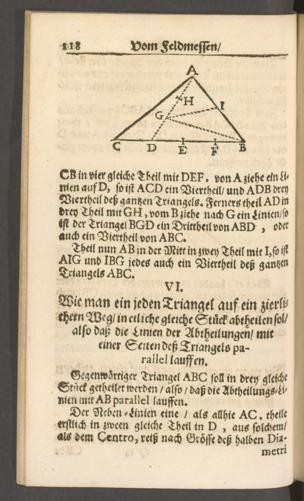 218 Vom Feldmessen/
A
H
G
I
C D E F B
CB in vier gleiche Theil mit DEF, von A ziehe ein Li-
nien auf D, so ist ACD ein Viertheil/ und ADB drey
Viertheil deß gantzen Triangels. Ferners theil AD in
drey Theil mit GH, vom B ziehe nach G ein Linien/ so
ist der Triangel BGD ein Drittheil von ABD, oder
auch ein Viertheil von ABC.
Theil nun AB in der Mitt in zwey Theil mit I, so ist
AIG und IBG jedes auch ein Viertheil deß gantzen
Triangels ABC.
VI.
Wie man ein jeden Triangel auf ein zierli-
chern Weg/ in etliche gleiche Stück abtheilen sol/
also daß die Linien der Abtheilungen/ mit
einer Seiten deß Triangels pa-
rallel lauffen.
Gegenwärtiger Triangel ABC soll in drey gleiche
Stück getheilet werden/ also/ daß die Abtheilungs-Li-
nien mit AB parallel lauffen.
Der Neben-Linien eine/ als allhie AC, theile
erstlich in zween gleiche Theil in D, aus solchem/
als dem Centro, reiß nach Grösse deß halben Dia-
metri